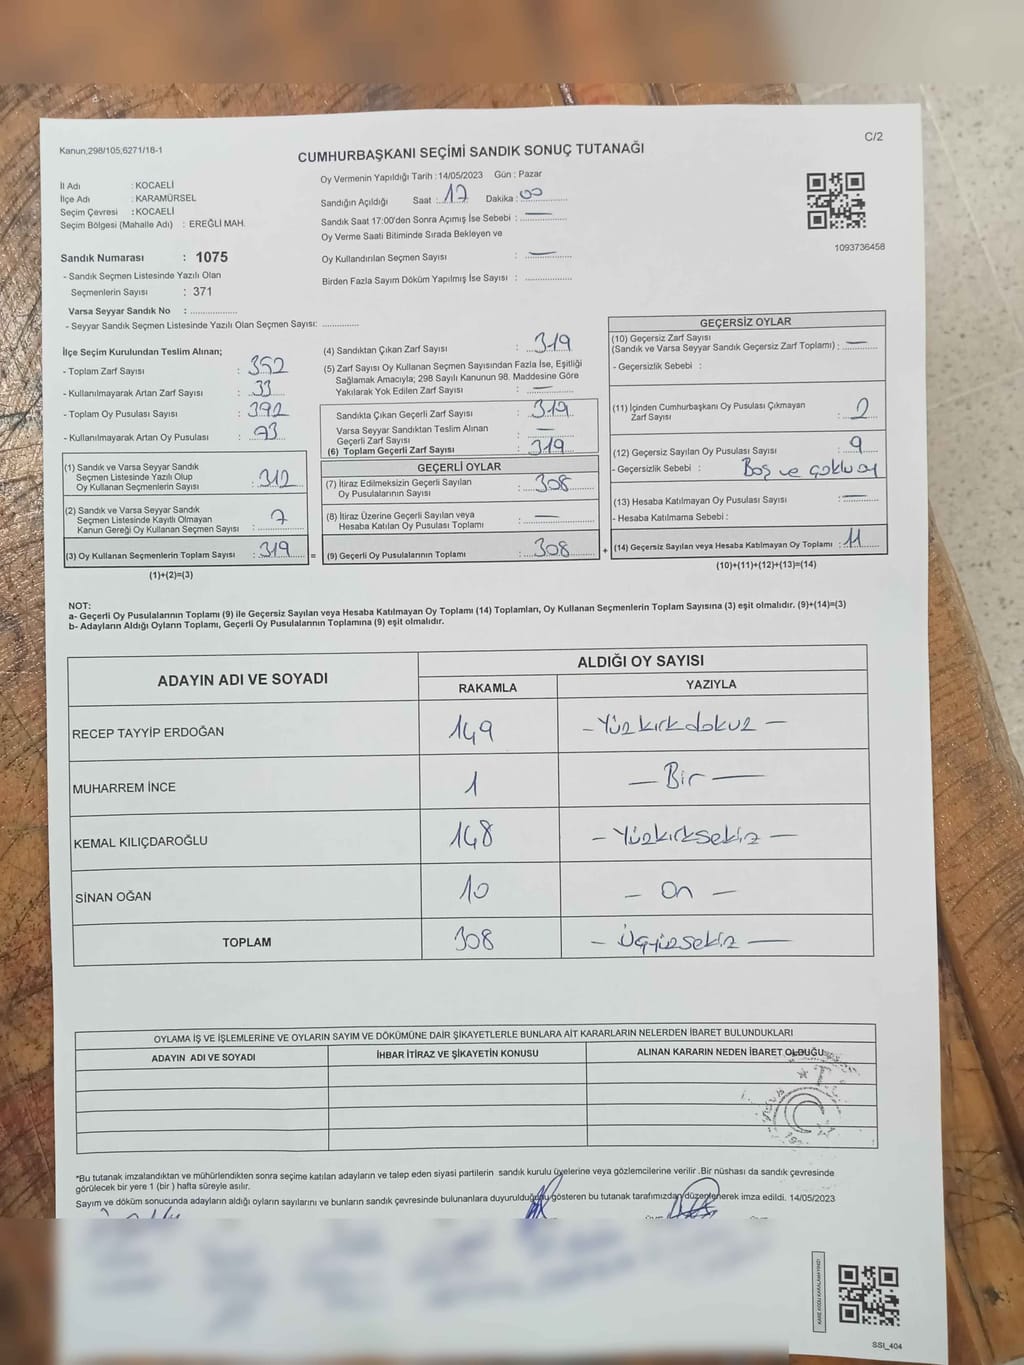 Kanun,298/105,6271/18-1
C/2
CUMHURBAŞKANI SEÇİMİ SANDIK SONUÇ TUTANAĞI
İl Adı : KOCAELİ
İlçe Adı : KARAMÜRSEL
Seçim Çevresi : KOCAELİ
Seçim Bölgesi (Mahalle Adı) : EREĞLİ MAH.
Oy Vermenin Yapıldığı Tarih : 14/05/2023 Gün : Pazar
Sandığın Açıldığı Saat : 17 Dakika : 00
Sandık Saat 17:00'den Sonra Açımış İse Sebebi : —
Oy Verme Saati Bitiminde Sırada Bekleyen ve
Oy Kullandırılan Seçmen Sayısı : —
Birden Fazla Sayım Döküm Yapılmış İse Sayısı : ..............
1093736458
Sandık Numarası : 1075
- Sandık Seçmen Listesinde Yazılı Olan
Seçmenlerin Sayısı : 371
Varsa Seyyar Sandık No : ..............
- Seyyar Sandık Seçmen Listesinde Yazılı Olan Seçmen Sayısı: ............
İlçe Seçim Kurulundan Teslim Alınan;
- Toplam Zarf Sayısı : 352
- Kullanılmayarak Artan Zarf Sayısı : 33
- Toplam Oy Pusulası Sayısı : 392
- Kullanılmayarak Artan Oy Pusulası : 73
(1) Sandık ve Varsa Seyyar Sandık
Seçmen Listesinde Yazılı Olup
Oy Kullanan Seçmenlerin Sayısı : 312
(2) Sandık ve Varsa Seyyar Sandık
Seçmen Listesinde Kayıtlı Olmayan
Kanun Gereği Oy Kullanan Seçmen Sayısı : 7
(3) Oy Kullanan Seçmenlerin Toplam Sayısı : 319 =
(1)+(2)=(3)
(4) Sandıktan Çıkan Zarf Sayısı : 319
(5) Zarf Sayısı Oy Kullanan Seçmen Sayısından Fazla İse, Eşitliği
Sağlamak Amacıyla; 298 Sayılı Kanunun 98. Maddesine Göre
Yakılarak Yok Edilen Zarf Sayısı : —
Sandıkta Çıkan Geçerli Zarf Sayısı : 319
Varsa Seyyar Sandıktan Teslim Alınan
Geçerli Zarf Sayısı : —
(6) Toplam Geçerli Zarf Sayısı : 319
GEÇERLİ OYLAR
(7) İtiraz Edilmeksizin Geçerli Sayılan
Oy Pusulalarının Sayısı : 308
(8) İtiraz Üzerine Geçerli Sayılan veya
Hesaba Katılan Oy Pusulası Toplamı : —
(9) Geçerli Oy Pusulalarının Toplamı : 308 +
GEÇERSİZ OYLAR
(10) Geçersiz Zarf Sayısı
(Sandık ve Varsa Seyyar Sandık Geçersiz Zarf Toplamı) : —
- Geçersizlik Sebebi :
(11) İçinden Cumhurbaşkanı Oy Pusulası Çıkmayan
Zarf Sayısı : 2
(12) Geçersiz Sayılan Oy Pusulası Sayısı : 9
- Geçersizlik Sebebi : Boş ve çoklu oy
(13) Hesaba Katılmayan Oy Pusulası Sayısı : —
- Hesaba Katılmama Sebebi :
(14) Geçersiz Sayılan veya Hesaba Katılmayan Oy Toplamı : 11
(10)+(11)+(12)+(13)=(14)
NOT:
a- Geçerli Oy Pusulalarının Toplamı (9) ile Geçersiz Sayılan veya Hesaba Katılmayan Oy Toplamı (14) Toplamları, Oy Kullanan Seçmenlerin Toplam Sayısına (3) eşit olmalıdır. (9)+(14)=(3)
b- Adayların Aldığı Oyların Toplamı, Geçerli Oy Pusulalarının Toplamına (9) eşit olmalıdır.
ADAYIN ADI VE SOYADI
ALDIĞI OY SAYISI
RAKAMLA YAZIYLA
RECEP TAYYİP ERDOĞAN 149 - Yüzkırkdokuz -
MUHARREM İNCE 1 - Bir -
KEMAL KILIÇDAROĞLU 148 - Yüzkırksekiz -
SİNAN OĞAN 10 - On -
TOPLAM 308 - Üçyüzsekiz -
OYLAMA İŞ VE İŞLEMLERİNE VE OYLARIN SAYIM VE DÖKÜMÜNE DAİR ŞİKAYETLERLE BUNLARA AİT KARARLARIN NELERDEN İBARET BULUNDUKLARI
ADAYIN ADI VE SOYADI İHBAR İTİRAZ VE ŞİKAYETİN KONUSU ALINAN KARARIN NEDEN İBARET OLDUĞU
*Bu tutanak imzalandıktan ve mühürlendikten sonra seçime katılan adayların ve talep eden siyasi partilerin sandık kurulu üyelerine veya gözlemcilerine verilir .Bir nüshası da sandık çevresinde
görülecek bir yere 1 (bir ) hafta süreyle asılır.
Sayım ve döküm sonucunda adayların aldığı oyların sayılarını ve bunların sandık çevresinde bulunanlara duyurulduğunu gösteren bu tutanak tarafımızdan düzenlenerek imza edildi. 14/05/2023
SSI_404